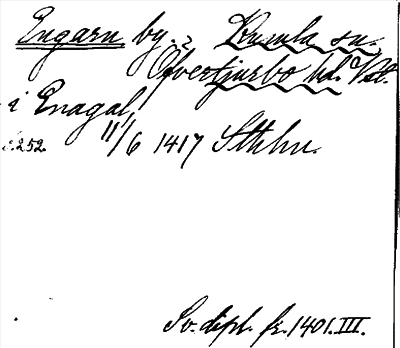 Engarn by. ? Kumla sn.
Öfvertjurbo hd. Vst.
i Enagal,
s. 252. 11/6 1417 Sthlm.
Sv. dipl. fr. 1401. III.